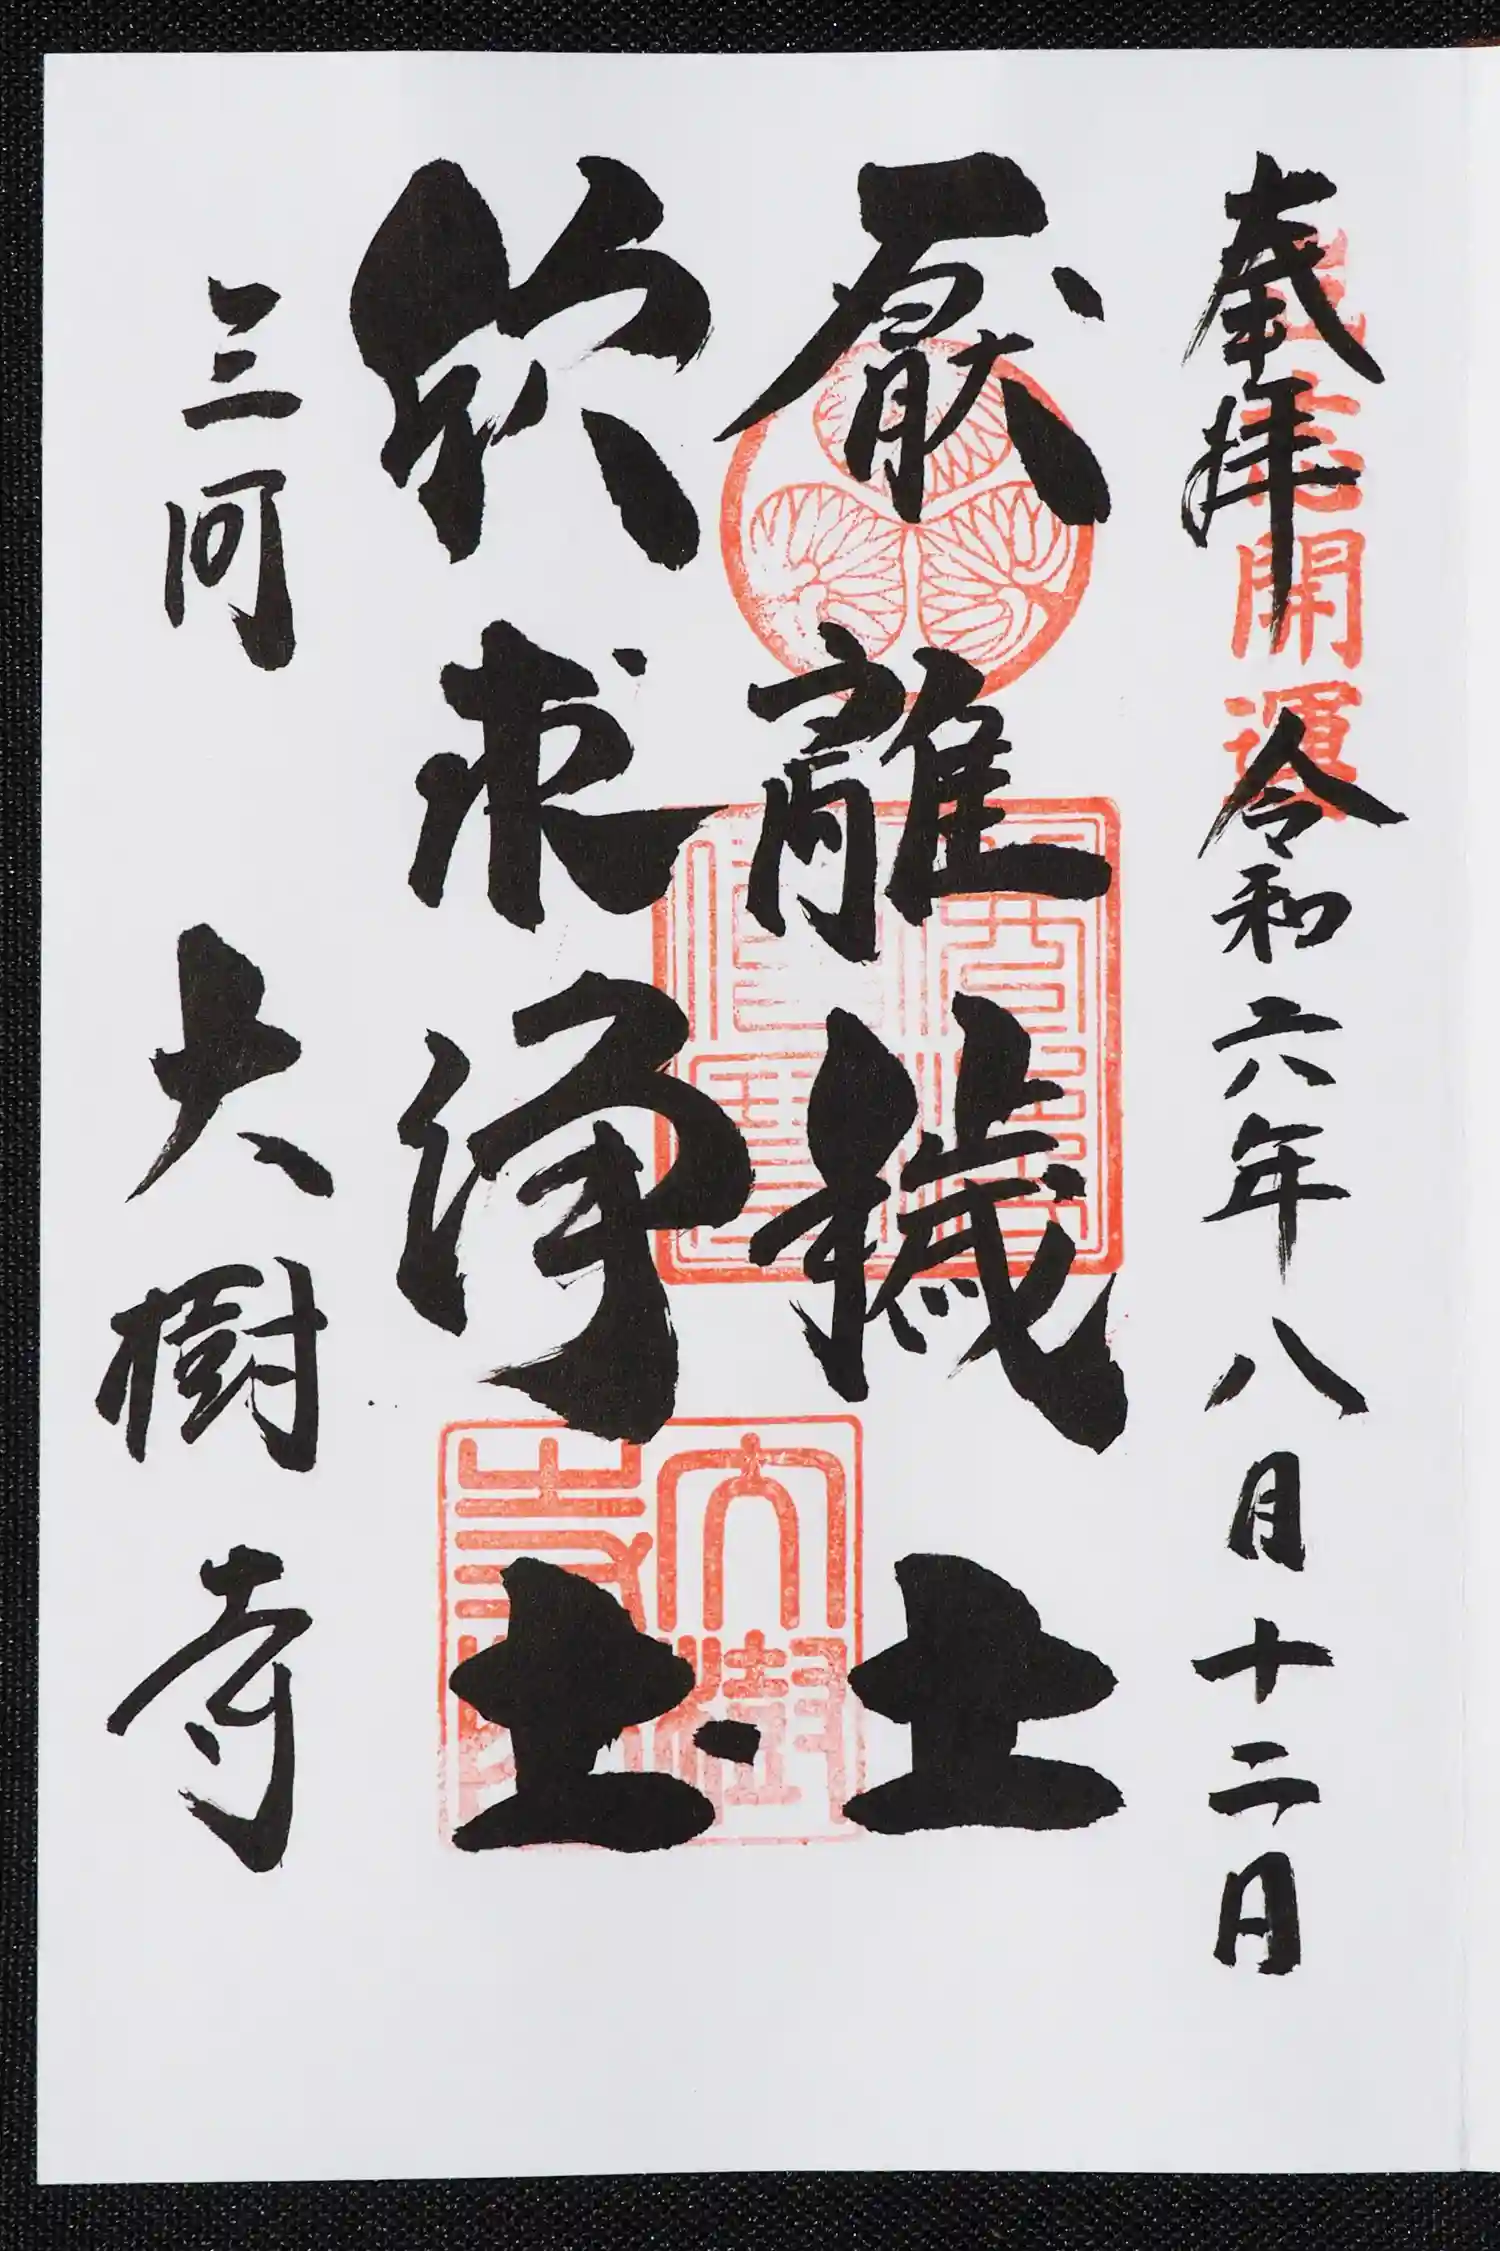 奉拝 令和六年八月十二日
厭離穢土
欣求浄土
三河 大樹寺
開運
大樹寺